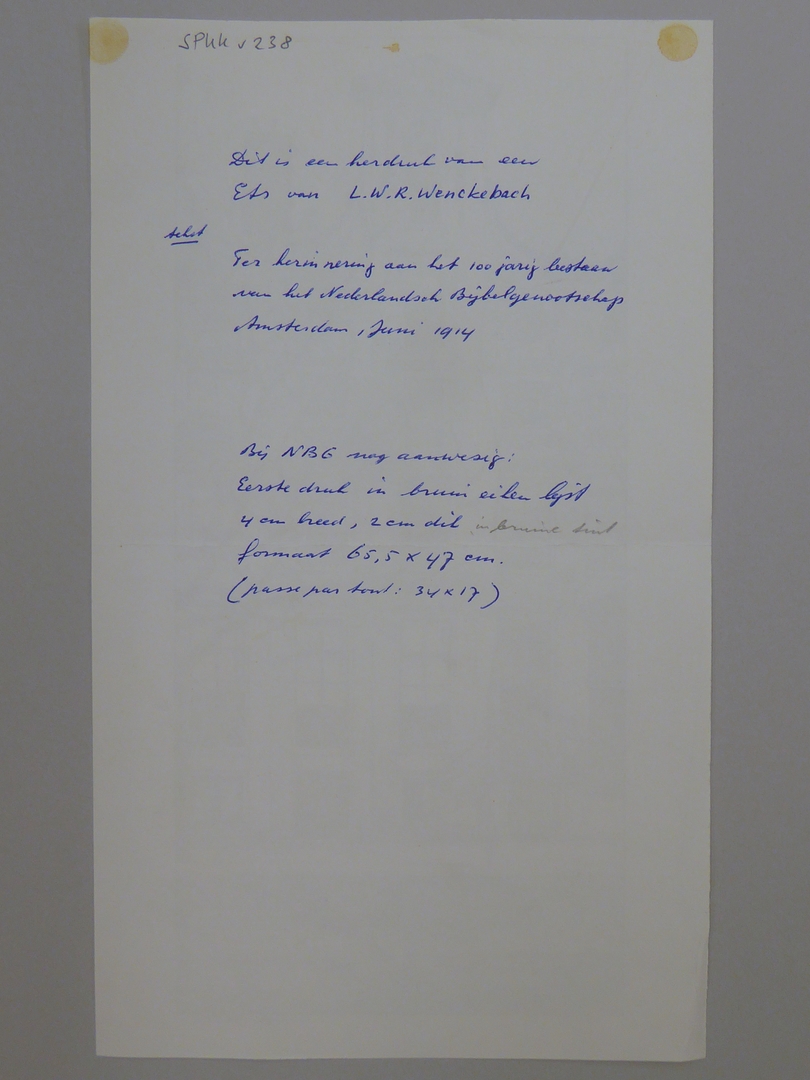 SPKK v 238
Dit is een herdruk van een
Ets van L.W.R. Wenckebach
tekst
Ter herinnering aan het 100 jarig bestaan
van het Nederlandsch Bijbelgenootschap
Amsterdam, Juni 1914
Bij NBG nog aanwezig:
Eerste druk in bruin eiken lijst
4 cm breed, 2 cm dik in bruine tint
formaat 65,5 x 47 cm.
(passe par tout: 34 x 17)